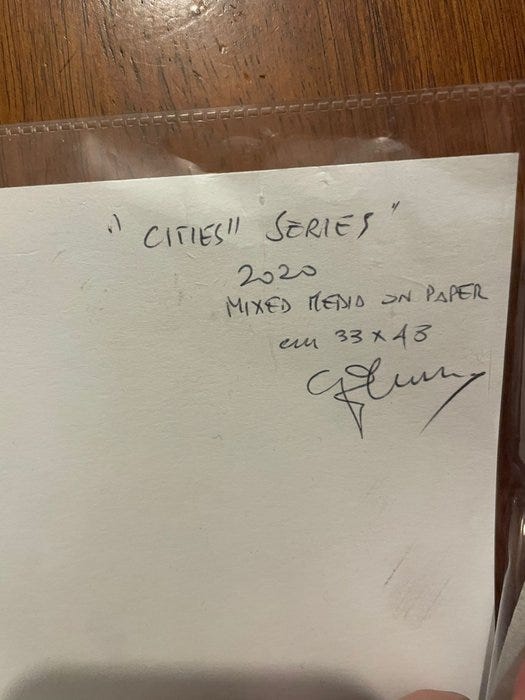 "CITIES" SERIES"
2020
MIXED MEDIA ON PAPER
cm 33 x 48